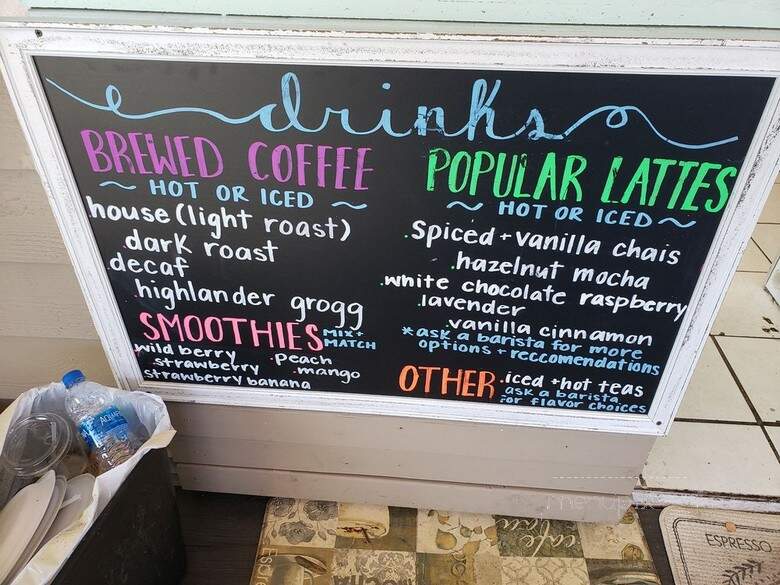 drinks
BREWED COFFEE
~ HOT OR ICED ~
house (light roast)
dark roast
decaf
highlander grogg
SMOOTHIES MIX +
MATCH
wild berry
strawberry
strawberry banana
.Peach
.mango
POPULAR LATTES
~ HOT OR ICED ~
.spiced + vanilla chais
.hazelnut mocha
.white chocolate raspberry
.lavender
.vanilla cinnamon
*ask a barista for more
options + reccomendations
OTHER .iced + hot teas
ask a barista
for flavor choices
AQUAFINA
cafe
ESPRESSO